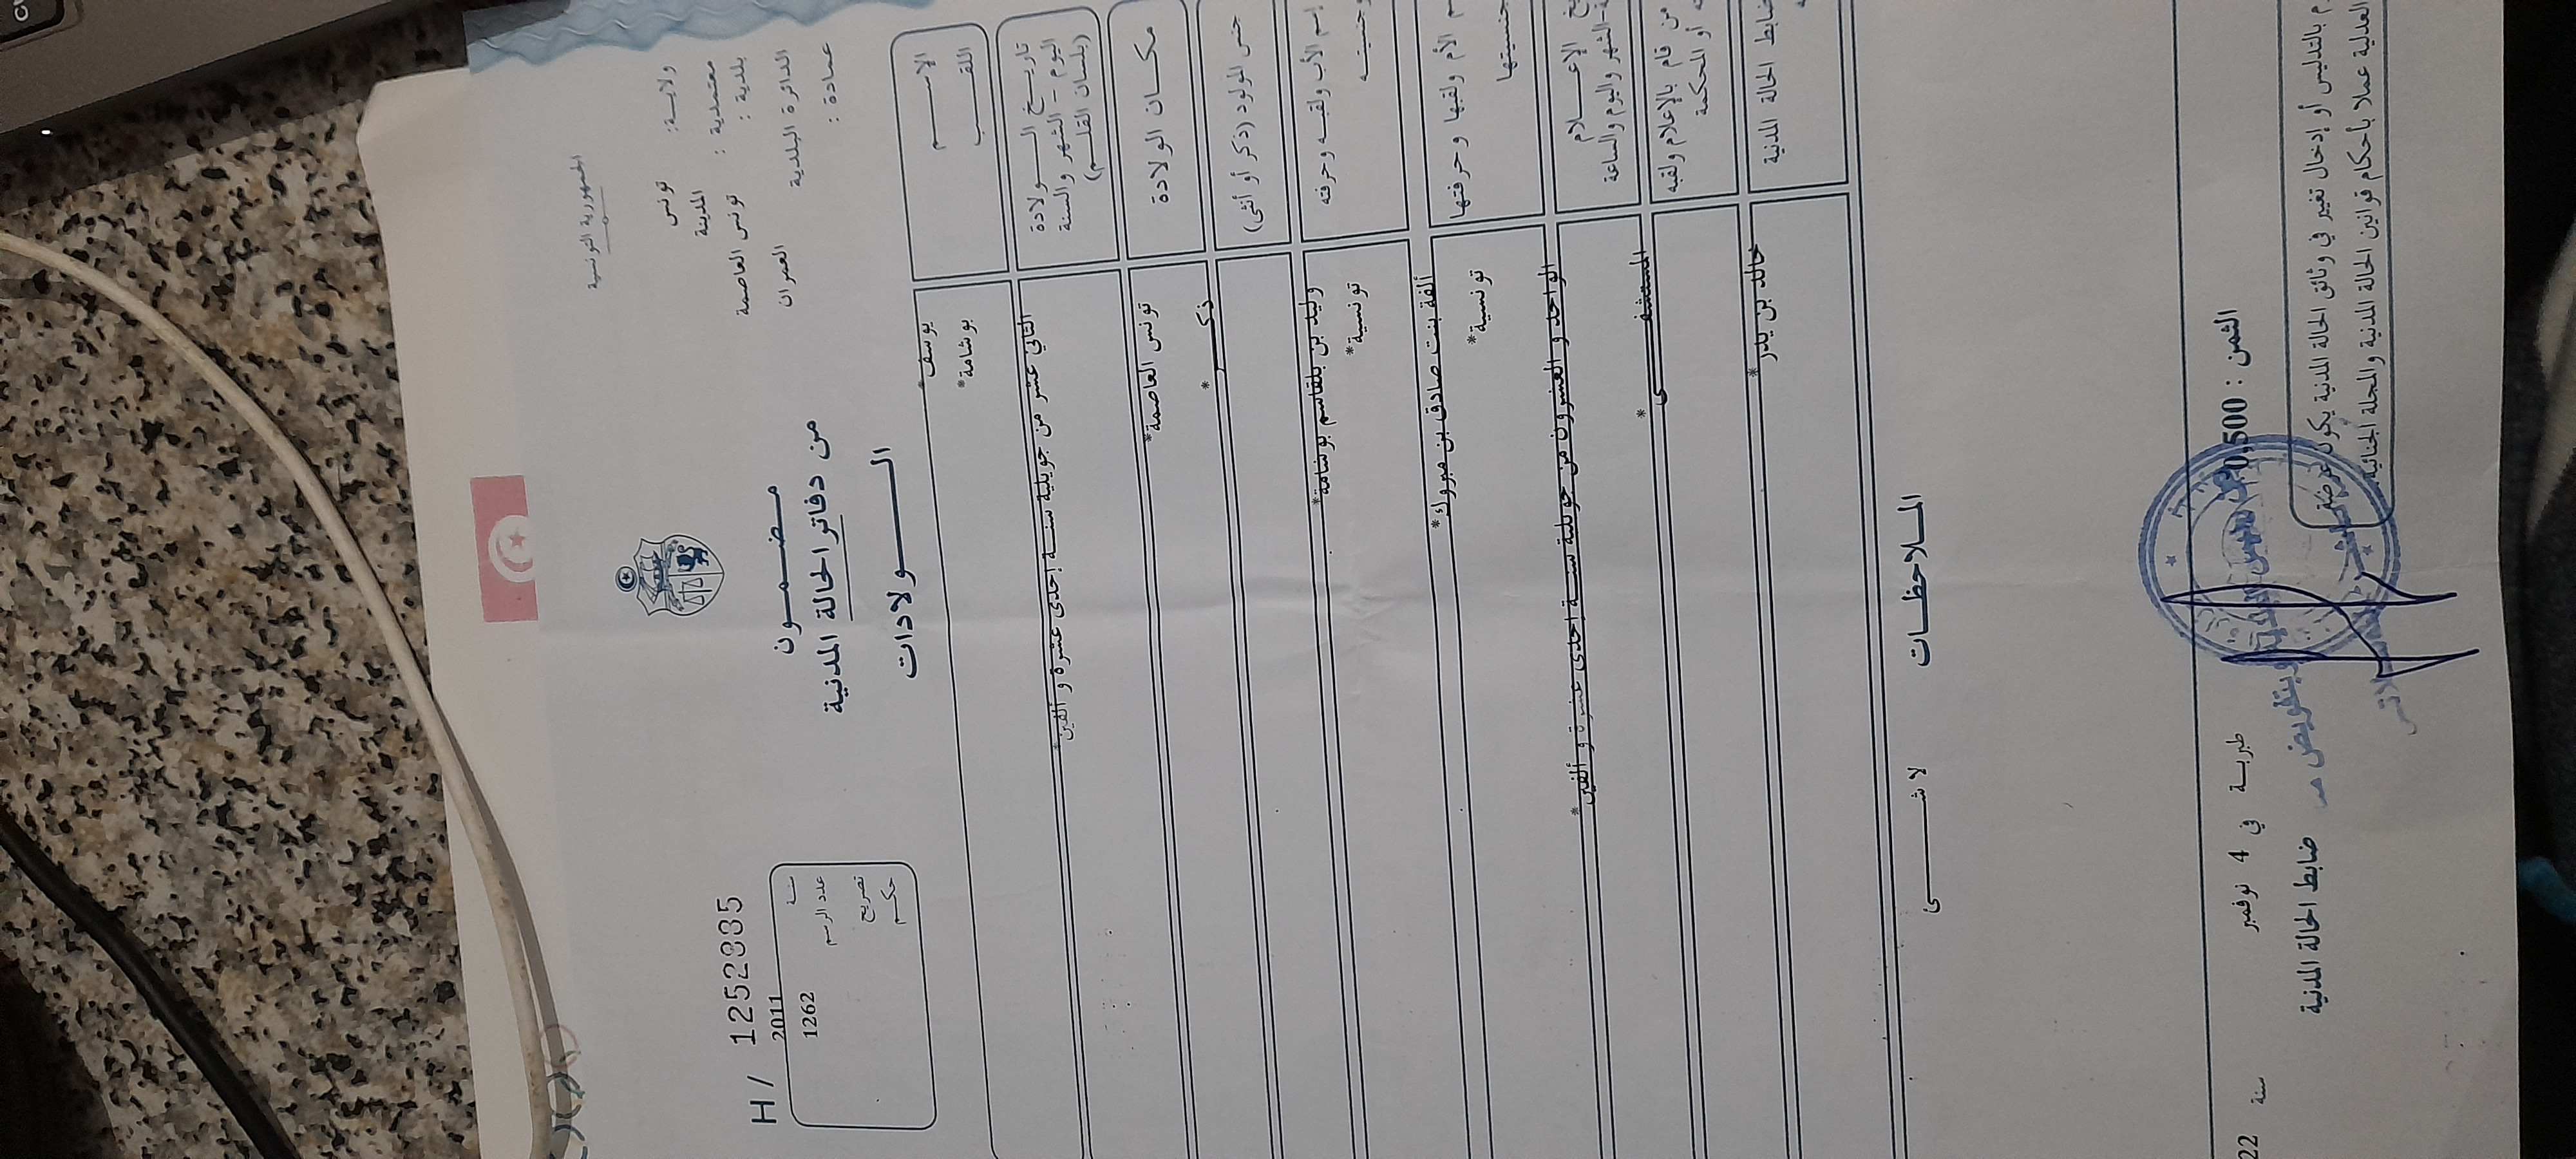 الجمهورية التونسية
ولاية: تونس
معتمدية : المدينة
بلدية : تونس العاصمة
الدائرة البلدية العمران
عمادة :
مضمون
من دفاتر الحالة المدنية
الولادات
H/ 1252335
سنة 2011
عدد الرسم 1262
تصريح
حكم
الاسم يوسف*
اللقب بوشامة*
تاريخ الولادة
اليوم - الشهر والسنة
(بلسان القلم)
الثاني عشر من جويلية سنة إحدى عشرة و ألفين*
مكان الولادة تونس العاصمة*
جنس المولود (ذكر أو أنثى) ذكر*
إسم الأب ولقبه وحرفته وليد بن بلقاسم بوشامة*
وجنسيته تونسية*
الأم ولقبها وحرفتها ألفة بنت صادق بن مبروك*
جنسيتها تونسية*
الإعلام
الشهر واليوم والساعة الواحد و العشرون من جويلية سنة إحدى عشرة و ألفين*
من قام بالإعلام ولقبه
أو المحكمة
المستشفى*
ضابط الحالة المدنية خالد بن يدر*
الملاحظات
لا شئ
الثمن : 0,500
طبربة في 4 نوفمبر سنة 22
ضابط الحالة المدنية
وبتفويض
بالتدليس أو إدخال تغيير في وثائق الحالة المدنية يكون عرضة
العدلية عملا بأحكام قوانين الحالة المدنية والمجلة الجنائية